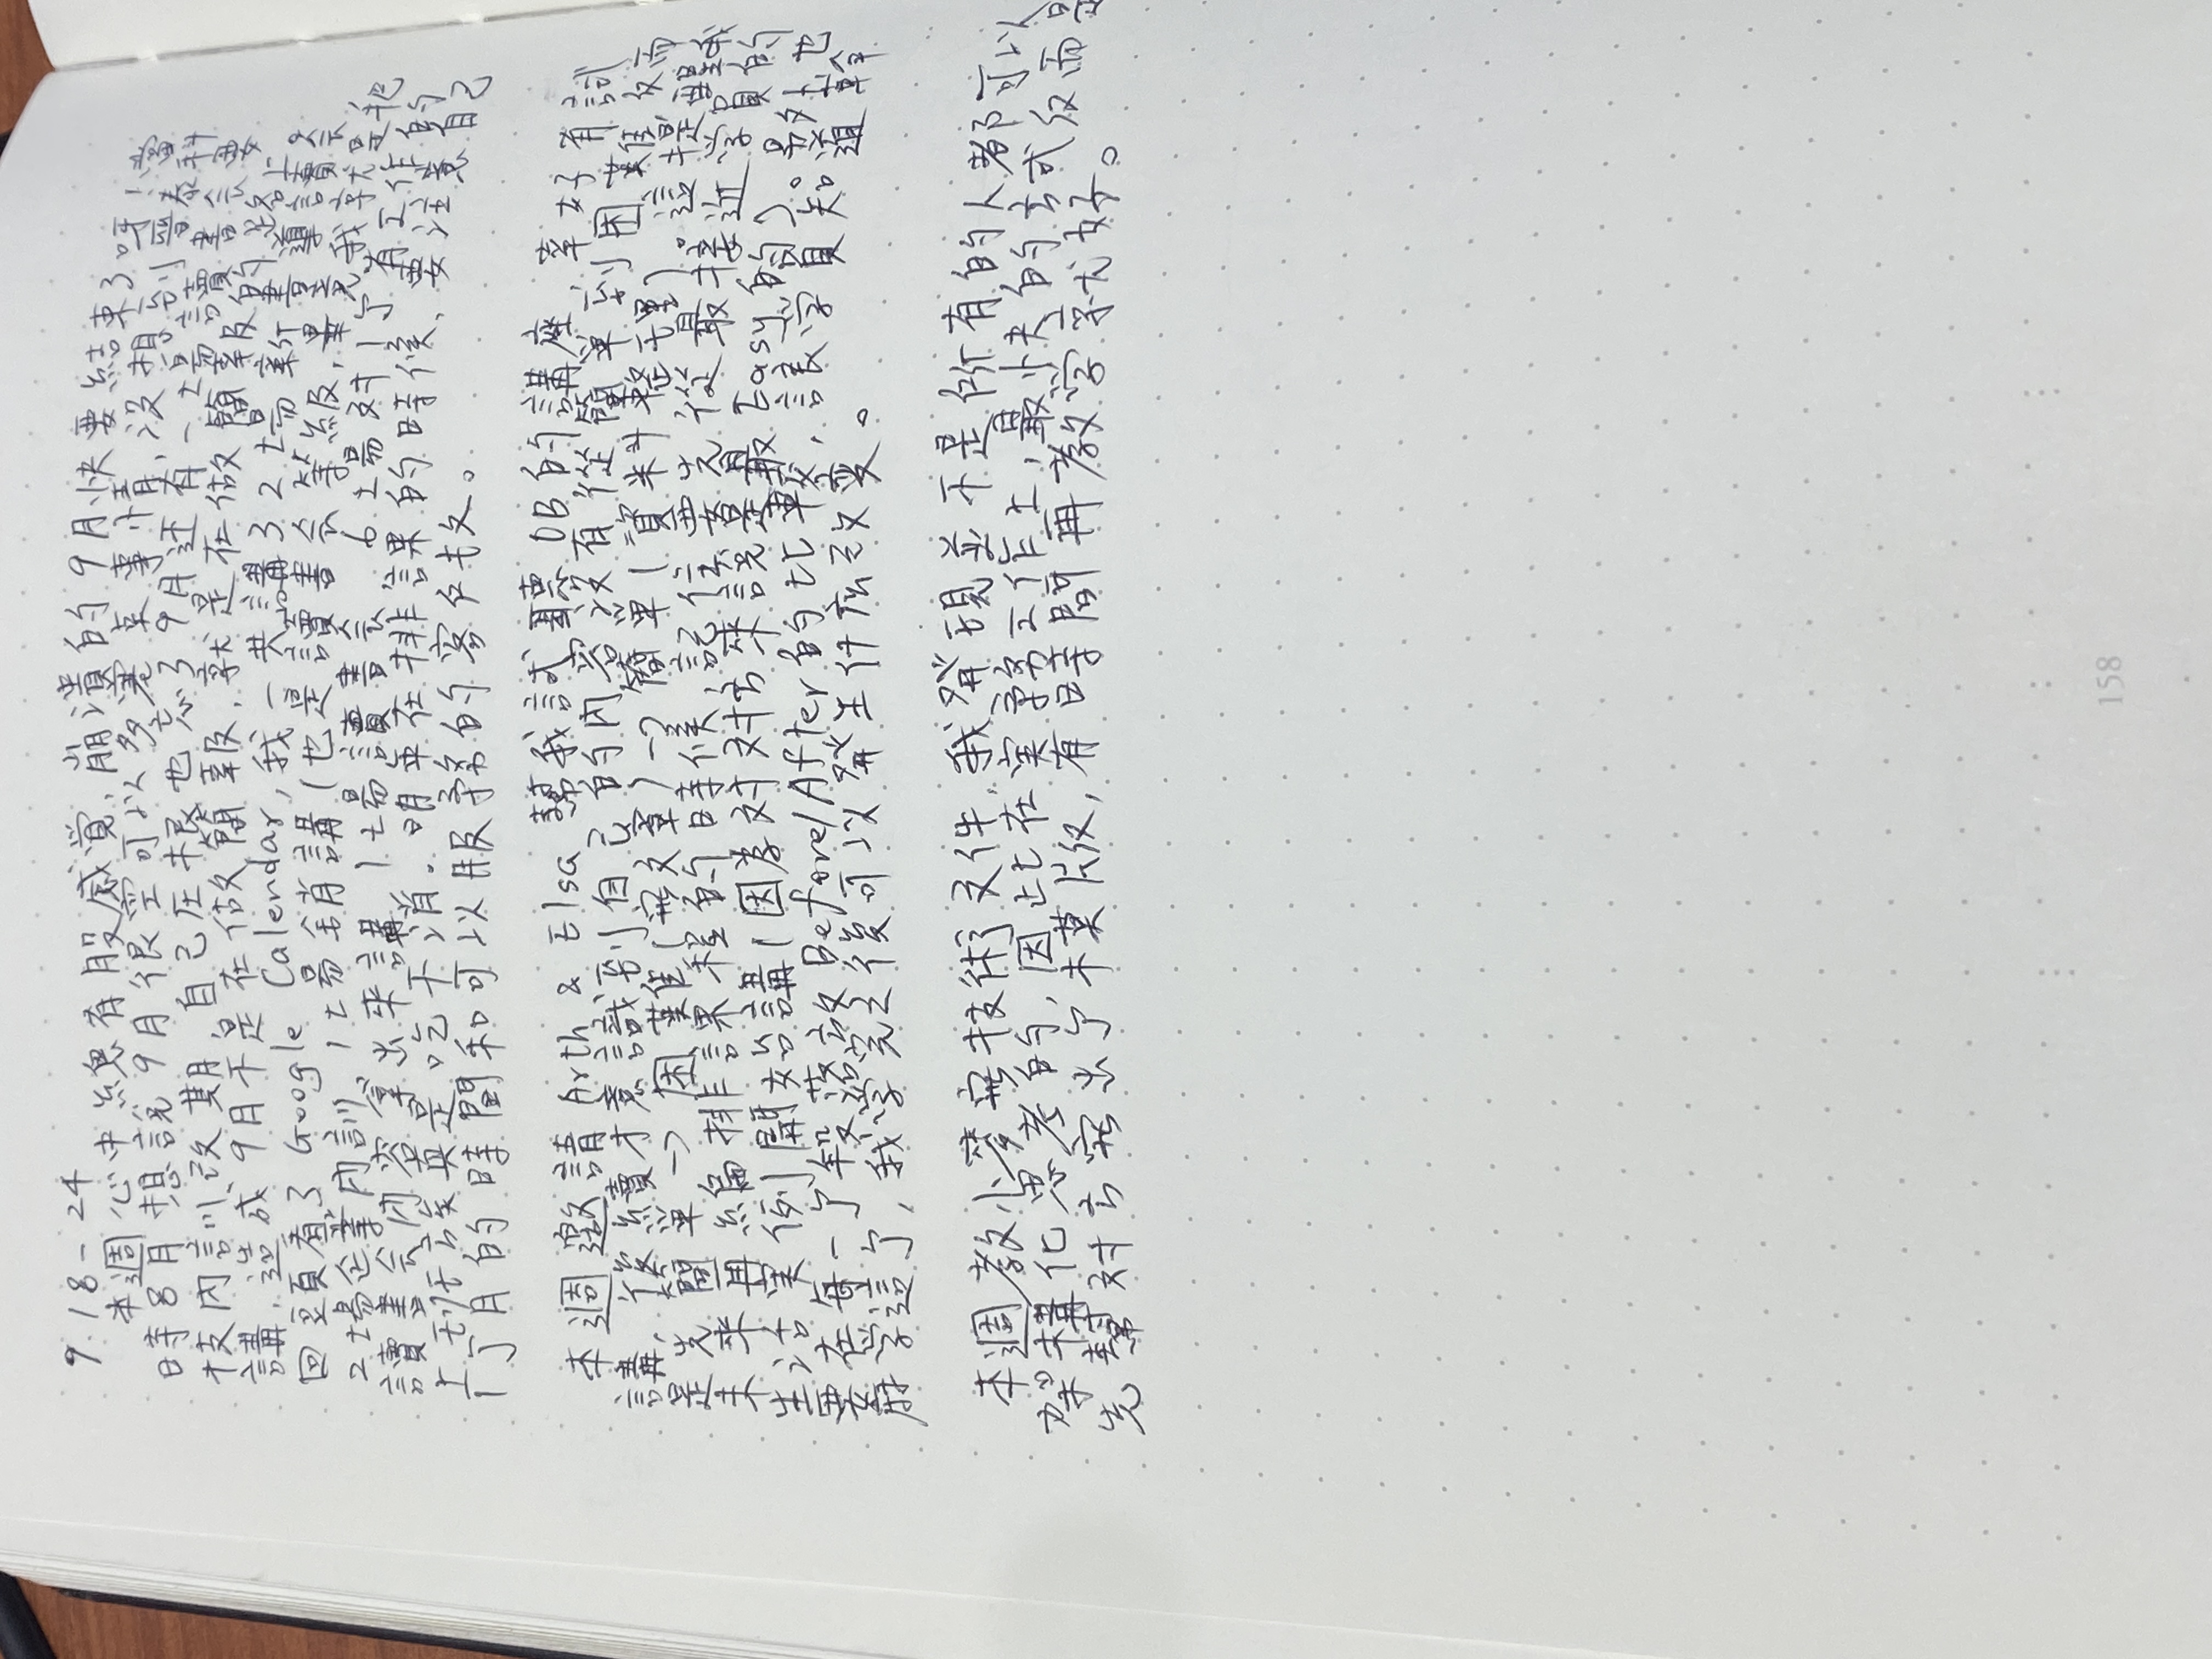 9.18-24
本週心中總有股感覚,崩潰的9月快要結束了呀!當
時8月想說9月很空可以多塞点事情,没想到晋泰科
技內訓改期,自己在根也忘了9月还有一場讀書会要
講,造成9月不是在做簡報,就是在做簡報的
回頭看了 Google Calendar,我一共講了2場新書
2場企業内訓、1場銷講(也是讀書会等級,畢竟我有
讀書会内容拿出來講、1場讀書会,6場対1个有工作的
上班族真是吃不消。明年在排課的時候,要注意自己
1个月的時間和可以服務的客户数。
本週邀請 Arth & Elsa 幫我試聽OB的講座,幸好有試
講,後續才意識到自己的内容没有從簡單到困難,反而
是先簡單→困難(寫文章)→簡單(資料整理)。這提醒我
未來再編排課程的時候,記住要先從最接近学員的
生活実例開始講(因為対対方來說是最Easy的)。另外也
要在每一个段落放 Before/After的比較,讓学員知道幹
麻学這个,我学完之後可以発生什麼改変。
本週教小麥寫技術文件,我発現並不是所有的人都可以
架構化思考的,因此在実務工作上,最快的方式反而是
先幫対方寫出个模版,有時間再教学就好。
158